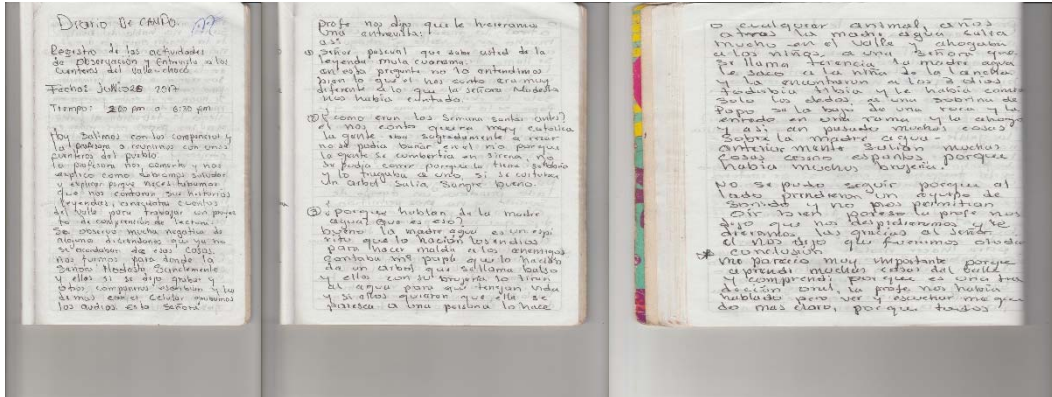 DIARIO DE CAMPO.
Registro de las actividades
de observación y Entrevista a los
Cuenteros del Valle-choco
Fecha: JUNIO 26 2017
Tiempo: 2:00 pm a 6:30 pm
Hoy Salimos con los compañeros y
la profesora a reunirnos con unos
cuenteros del pueblo
la profesora nos comento y nos
explico como teniamos saludar
y explicar porque necesitabamos
que nos contaran sus historias
leyendas, anecdotas cuentos
del valle para trabajar un proyec
to de comprensión de lectura.
Se observo mucha negativa de
algunos diciendonos que ya no
se acordaban de esas cosas.
Nos fuimos para donde la
Señora Modesta Sanclemente
y ella si se dejo grabar y
otros compañeros escribian y los
demas con el celular grabamos
los audios esta Señora.
profe nos dijo que le hicieramos
una entrevista:
asi
① Señor pascual que sabe usted de la
leyenda mula cuarama.
en esta pregunta no la entendimos
bien lo que el nos conto era muy
diferente a lo que la señora Modesta
nos habia contado.
② ¿como eran las semana santas antes?
el nos conto que era muy catolica
la gente iba sagradamente a rezar
no se podia bañar en el rio porque
la gente se combertia en sirena, no
se podia comer porque la tierra se habria
y lo tragaba a uno, si se cortaba
un arbol salia sangre bueno.
③ ¿porque hablan de la madre
agua? que es eso?
bueno la madre agua es un espi
ritu que lo hacian los indios
para hacer maldad a los enemigos
contaba mi papá que lo hacian
de un arbol que se llama balso
y ellos con su brujeria lo tiran
al agua para que tengan vida
y si ellos quieren que ella se
paresca a una persona lo hace
o cualquier animal, años
atras la madre agua salia
mucho en el Valle y ahogaba
a los niños, a una señora que
se llama terencia la madre agua
le saco a la niña de la lancha
y la encontraron a los 3 dias
todabia tibia y le habia comido
solo los dedos, a una sobrina de
Papo se la bajo de una roca y la
enredo en una rama y la ahogo
y asi an pasado muchas cosas
sobre la madre agua-
anteriormente Salian muchas
cosas como espantos, porque
habia mucha brujeria.
No se pudo seguir porque al
lado prendieron un equipo de
sonido y no nos permitian
oir bien por eso la profe nos
dijo que nos despidieramos y le
dieramos las gracias al señor
el nos dijo que
conclusión
me parecio muy importante porque
aprendi muchas cosas del Valle
y comprendi porque es una tra
dición oral, la profe nos habia
hablado pero ver y escuchar me que
do mas claro, porque todos